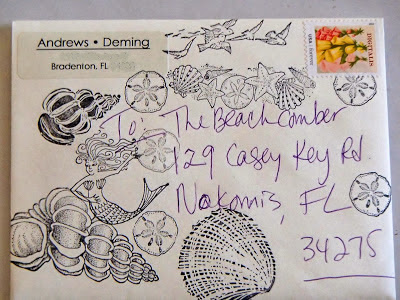 Andrews • Deming
Bradenton, FL
DIGITALIS
To: The Beachcomber
129 Casey Key Rd.
Nokomis, FL
34275